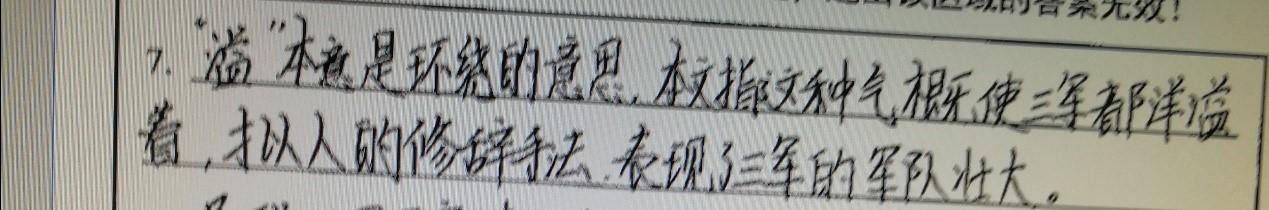 超出该区域的答案无效！
7. “溢”本意是环绕的意思，本文指这种气概，使三军都洋溢
着，拟人的修辞手法，表现了三军的军队壮大。